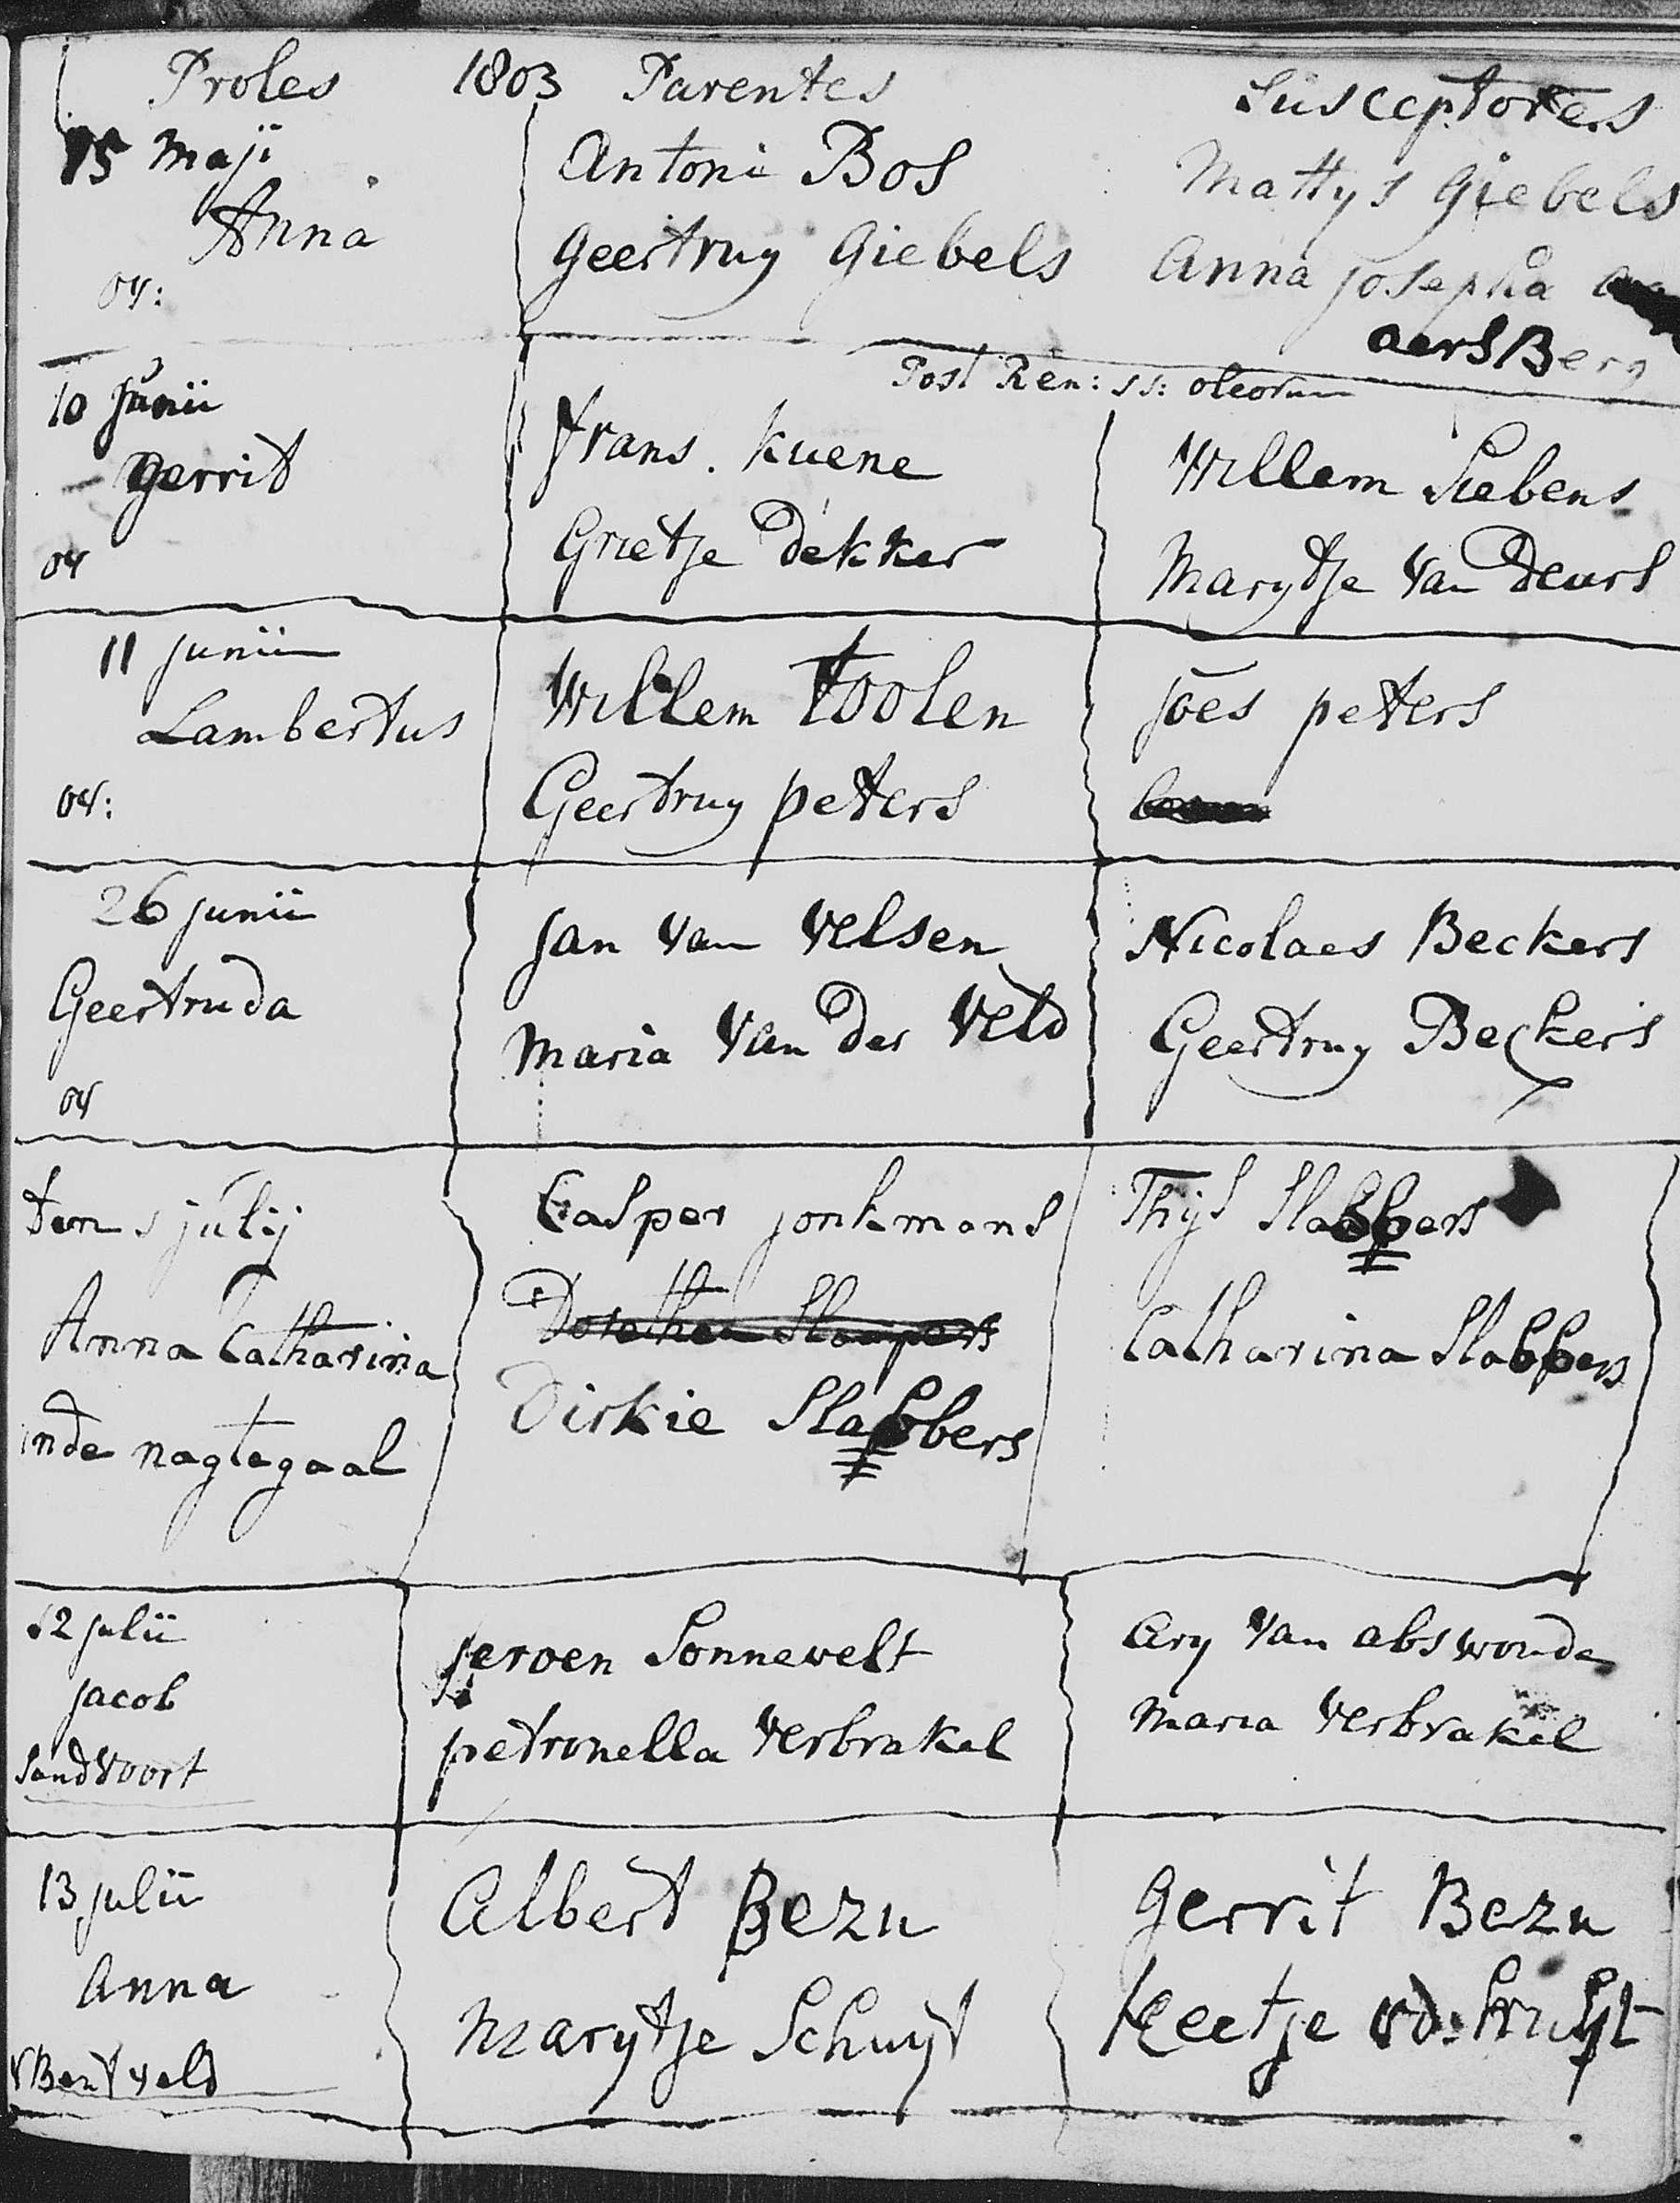 Proles 1803 Parentes Susceptores
15 Maji
Anna
ov:
Antoni Bos
Geertruy Giebels
Mattys Giebels
Anna Josepha
aersBerg
Post Ren: ss: oleorum
10 Junii
gerrit
ov
frans. kuene
Grietje Dekker
Willem Siebens
Marytje Van Deurs
11 Junii
Lambertus
ov:
Willem Toolen
Geertruy peters
Jōes peters
26 Junii
Geertruda
ov
Jan Van Velsen
Maria Van Der Veld
Nicolaes Beckers
Geertruy Beckers
den 5 julij
Anna Catharina
inde nagtegaal
Casper jonkmans
Dorothea Slampers
Dirkie Slabbers
Thijs Slabbers
Catharina Slabbers
12 Julii
Jacob
Sandvoort
Jeroen Sonnevelt
petronella Verbrakel
Ary Van abswoude
Maria Verbrakel
13 Julii
Anna
Bentveld
Albert Bezu
Marytje Schuyt
Gerrit Bezu
Keetje vd: